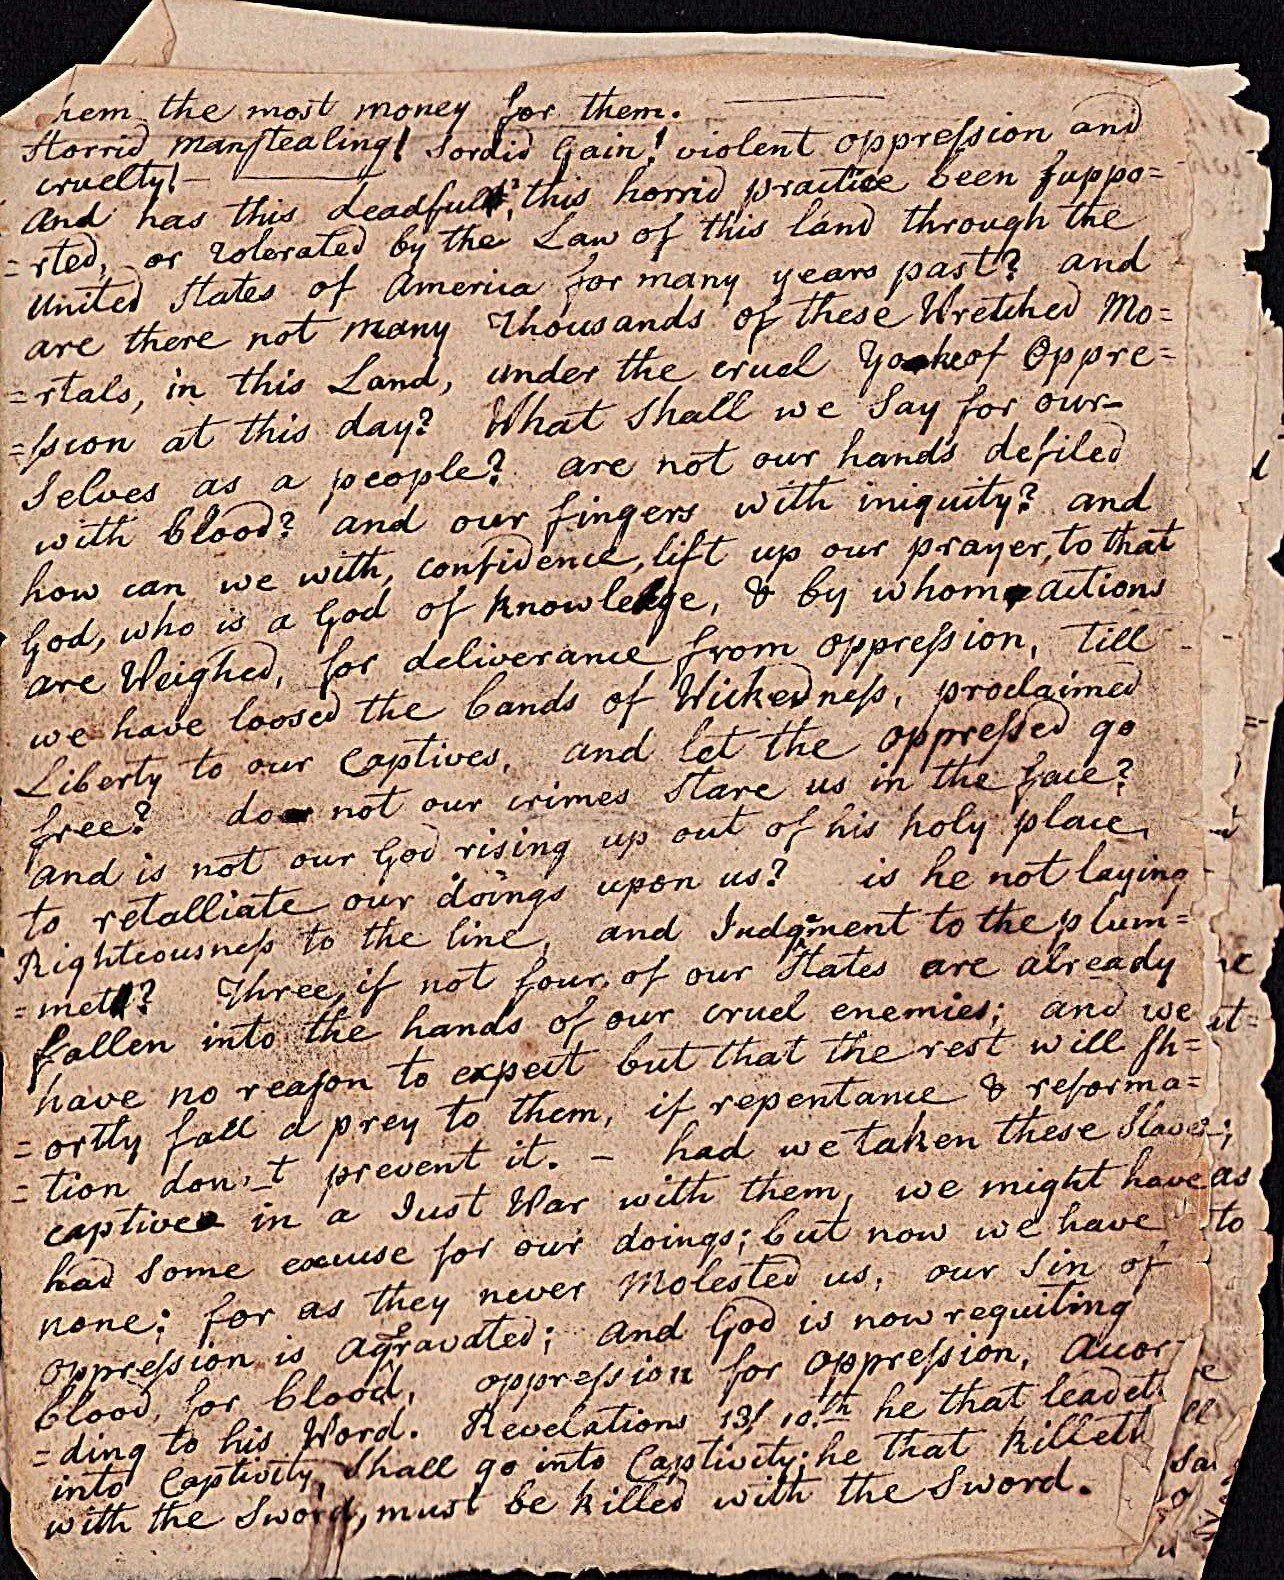 hem the most money for them. ———
Horrid manſtealing! Sordid Gain! violent oppreſsion and
cruelty!—
and has this deadfull, this horrid practice been ſuppo=
=rted, or tolerated by the Law of this land through the
united States of America for many years past? and
are there not many Thousands of these Wretched Mo=
=rtals, in this Land, under the cruel Yoake of Oppre=
=ſsion at this day? What Shall we Say for our-
Selves as a people? are not our hands defiled
with blood? and our fingers with iniquity? and
how can we with, confidence, lift up our prayer, to that
God, who is a God of knowlege, & by whom actions
are Weighed, for deliverance from oppreſsion, till
we have loosed the bands of Wickedneſs, proclaimed
Liberty to our Captives, and let the oppreſsed go
free? do not our crimes Stare us in the face?
and is not our God rising up out of his holy place,
to retalliate our doings upon us? is he not laying
Righteousneſs to the line, and Judgment to the plum=
=met? Three, if not four, of our States are already
fallen into the hands of our cruel enemies; and we
have no reaſon to expect but that the rest will ſh=
=ortly fall a prey to them, if repentance & reforma=
=tion don,t prevent it. – had we taken these Slaves;
captive in a Just War with them, we might have
had Some excuse for our doings; but now we have
none; for as they never Molested us, our Sin of
oppreſsion is agravated; and God is now requiting
blood, for blood, oppreſsion for oppreſsion, Accor
=ding to his Word. Revelations 13/10.th he that leadet
into Captivity, Shall go into Captivity; he that killeth
with the Sword, must be killed with the Sword.